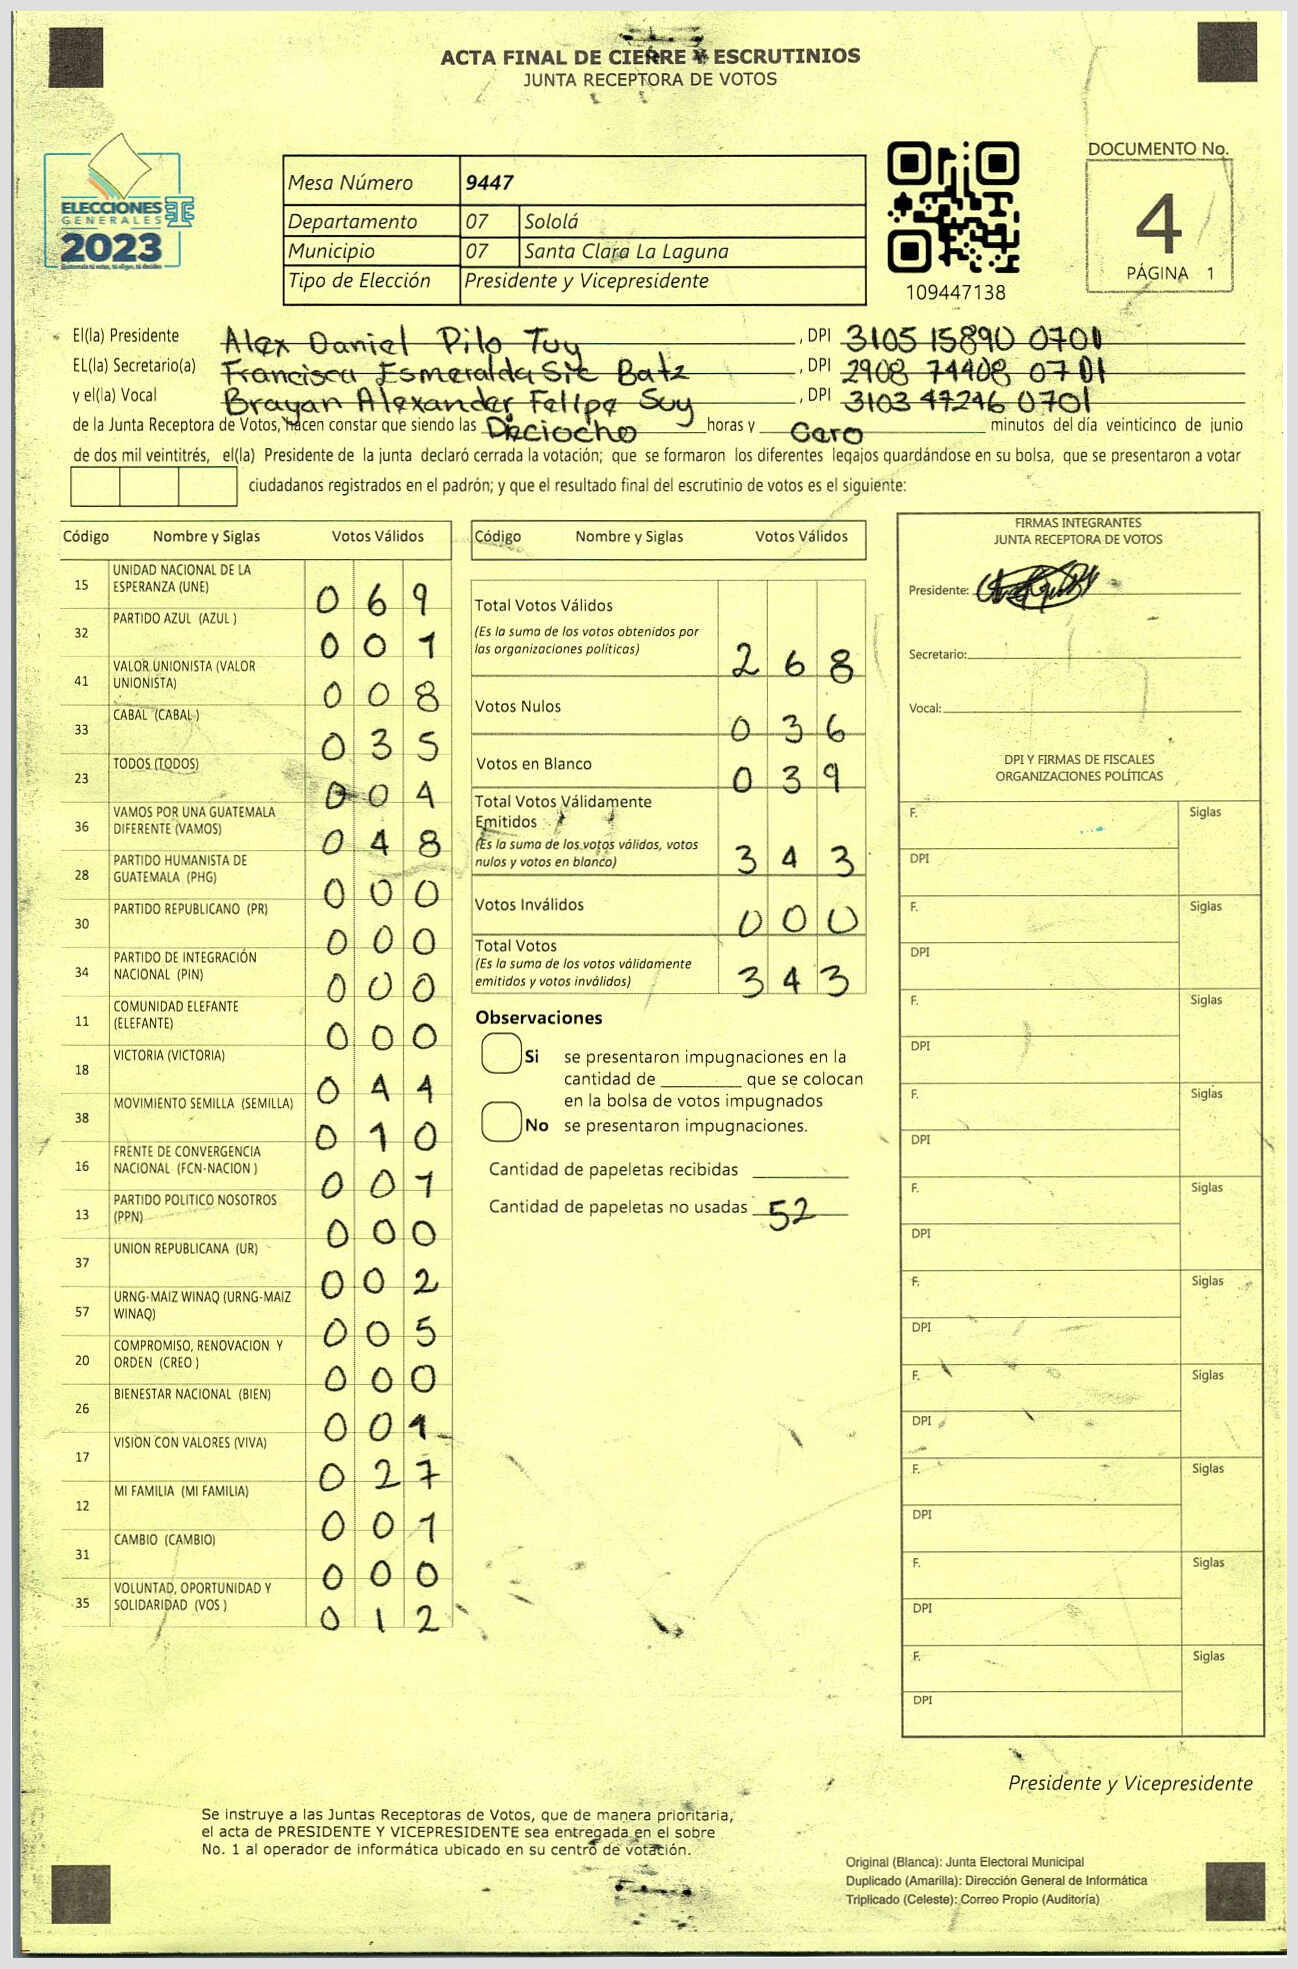 ACTA FINAL DE CIERRE Y ESCRUTINIOS
JUNTA RECEPTORA DE VOTOS
ELECCIONES
GENERALES
2023
Guatemala tú votas, tú eliges, tú decides
Mesa Número 9447
Departamento 07 Sololá
Municipio 07 Santa Clara La Laguna
Tipo de Elección Presidente y Vicepresidente
109447138
DOCUMENTO No.
4
PÁGINA 1
El(la) Presidente Alex Daniel Pilo Tuy, DPI 3105 15890 0701
EL(la) Secretario(a) Francisca Esmeralda Sic Batz, DPI 2908 74408 0701
y el(la) Vocal Brayan Alexander Felipe Suy, DPI 3103 47246 0701
de la Junta Receptora de Votos, hacen constar que siendo las Dieciocho horas y Cero minutos del día veinticinco de junio
de dos mil veintitrés, el(la) Presidente de la junta declaró cerrada la votación; que se formaron los diferentes legajos guardándose en su bolsa, que se presentaron a votar
ciudadanos registrados en el padrón; y que el resultado final del escrutinio de votos es el siguiente:
Código Nombre y Siglas Votos Válidos
15 UNIDAD NACIONAL DE LA ESPERANZA (UNE) 069
32 PARTIDO AZUL (AZUL ) 001
41 VALOR UNIONISTA (VALOR UNIONISTA) 008
33 CABAL (CABAL ) 035
23 TODOS (TODOS) 004
36 VAMOS POR UNA GUATEMALA DIFERENTE (VAMOS) 048
28 PARTIDO HUMANISTA DE GUATEMALA (PHG) 000
30 PARTIDO REPUBLICANO (PR) 000
34 PARTIDO DE INTEGRACIÓN NACIONAL (PIN) 000
11 COMUNIDAD ELEFANTE (ELEFANTE) 000
18 VICTORIA (VICTORIA) 044
38 MOVIMIENTO SEMILLA (SEMILLA) 010
16 FRENTE DE CONVERGENCIA NACIONAL (FCN-NACION ) 001
13 PARTIDO POLITICO NOSOTROS (PPN) 000
37 UNION REPUBLICANA (UR) 002
57 URNG-MAIZ WINAQ (URNG-MAIZ WINAQ) 005
20 COMPROMISO, RENOVACION Y ORDEN (CREO ) 000
26 BIENESTAR NACIONAL (BIEN) 001
17 VISION CON VALORES (VIVA) 027
12 MI FAMILIA (MI FAMILIA) 001
31 CAMBIO (CAMBIO) 000
35 VOLUNTAD, OPORTUNIDAD Y SOLIDARIDAD (VOS ) 012
Código Nombre y Siglas Votos Válidos
Total Votos Válidos
(Es la suma de los votos obtenidos por
las organizaciones políticas) 268
Votos Nulos 036
Votos en Blanco 039
Total Votos Válidamente
Emitidos
(Es la suma de los votos válidos, votos
nulos y votos en blanco) 343
Votos Inválidos 000
Total Votos
(Es la suma de los votos válidamente
emitidos y votos inválidos) 343
Observaciones
Si se presentaron impugnaciones en la
cantidad de ________ que se colocan
en la bolsa de votos impugnados
No se presentaron impugnaciones.
Cantidad de papeletas recibidas
Cantidad de papeletas no usadas 52
FIRMAS INTEGRANTES
JUNTA RECEPTORA DE VOTOS
Presidente:
Secretario:
Vocal:
DPI Y FIRMAS DE FISCALES
ORGANIZACIONES POLÍTICAS
F. Siglas
DPI
F. Siglas
DPI
F. Siglas
DPI
F. Siglas
DPI
F. Siglas
DPI
F. Siglas
DPI
F. Siglas
DPI
F. Siglas
DPI
F. Siglas
DPI
F. Siglas
DPI
Presidente y Vicepresidente
Se instruye a las Juntas Receptoras de Votos, que de manera prioritaria,
el acta de PRESIDENTE Y VICEPRESIDENTE sea entregada en el sobre
No. 1 al operador de informática ubicado en su centro de votación.
Original (Blanca): Junta Electoral Municipal
Duplicado (Amarilla): Dirección General de Informática
Triplicado (Celeste): Correo Propio (Auditoría)